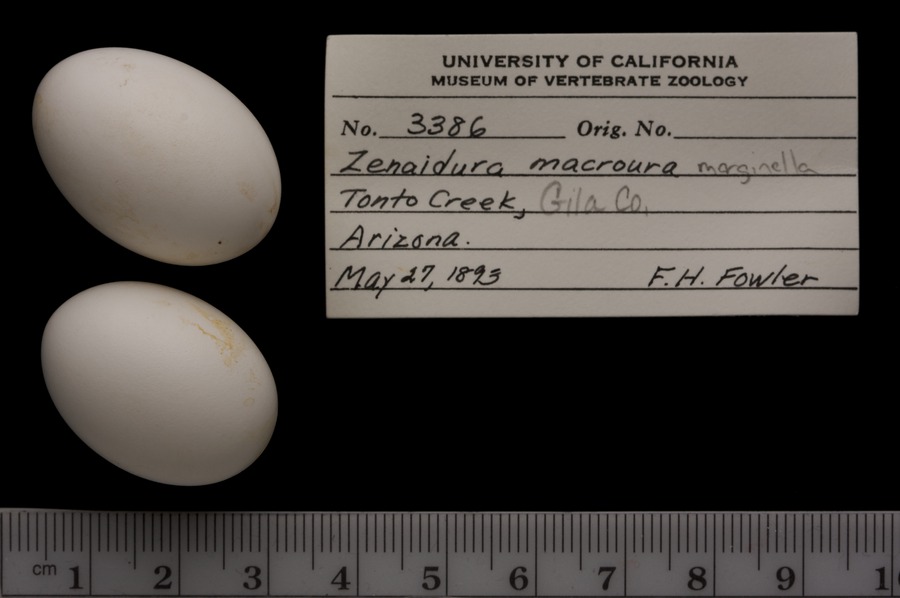 UNIVERSITY OF CALIFORNIA
MUSEUM OF VERTEBRATE ZOOLOGY
No. 3386 Orig. No.
Zenaidura macroura marginella
Tonto Creek, Gila Co.
Arizona.
May 27, 1893 F.H. Fowler
cm 1 2 3 4 5 6 7 8 9 1